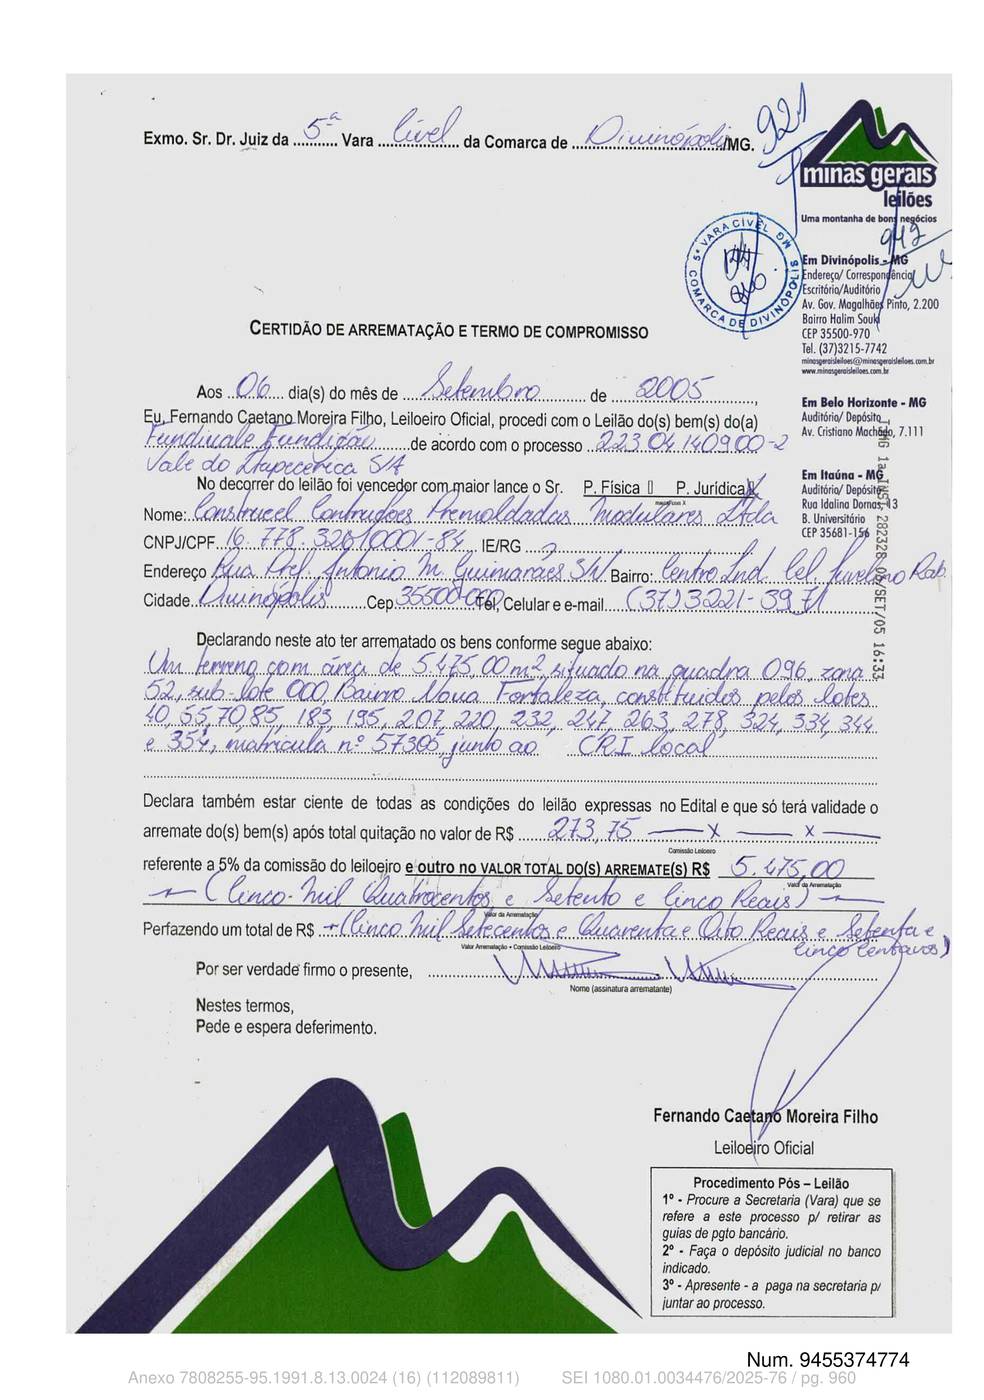 Exmo. Sr. Dr. Juiz da 5ª Vara Cível da Comarca de Divinópolis/MG.
921
minas gerais
leilões
Uma montanha de bons negócios
942
5ª VARA CÍVEL
COMARCA DE DIVINÓPOLIS
Em Divinópolis - MG
Endereço/ Correspondência/
Escritório/Auditório
Av. Gov. Magalhães Pinto, 2.200
Bairro Halim Souki
CEP 35500-970
Tel. (37)3215-7742
minasgeraisleiloes@minasgeraisleiloes.com.br
www.minasgeraisleiloes.com.br
Em Belo Horizonte - MG
Auditório/ Depósito
Av. Cristiano Machado, 7.111
Em Itaúna - MG
Auditório/ Depósito
Rua Idalina Dornas, 13
B. Universitário
CEP 35681-156
CERTIDÃO DE ARREMATAÇÃO E TERMO DE COMPROMISSO
Aos 06 dia(s) do mês de Setembro de 2005,
Eu, Fernando Caetano Moreira Filho, Leiloeiro Oficial, procedi com o Leilão do(s) bem(s) do(a)
Fundivale Fundição de acordo com o processo 223 04 140900-2
Vale do Itapecerica S/A
No decorrer do leilão foi vencedor com maior lance o Sr. P. Física P. Jurídica X
Nome: Construcel Contrucoes Premoldadas Modulares Ltda
CNPJ/CPF 16.778.326/0001-84 IE/RG
Endereço Rua Prof. Antonio M. Guimarães S/N Bairro: Centro Ind. Cel. Juvelino Rab.
Cidade Divinópolis Cep 35500-000 Tel, Celular e e-mail (37) 3221-3971
282328 06/SET/05 16:33
Declarando neste ato ter arrematado os bens conforme segue abaixo:
Um terreno com área de 5.475,00 m², situado na quadra 096, zona
52, sub-lote 000, Bairro Nova Fortaleza, constituidos pelos lotes
40, 55, 70 85, 183, 195, 207, 220, 232, 247, 263, 278, 324, 334, 344
e 354, matricula nº 57305, junto ao CRI local
Declara também estar ciente de todas as condições do leilão expressas no Edital e que só terá validade o
arremate do(s) bem(s) após total quitação no valor de R$ 273,75 — x — x —
Comissão Leiloeiro
referente a 5% da comissão do leiloeiro e outro no VALOR TOTAL DO(S) ARREMATE(S) R$ 5.475,00
Valor da Arrematação
(Cinco Mil Quatrocentos e Setenta e Cinco Reais)
Valor da Arrematação
Perfazendo um total de R$ (Cinco Mil Setecentos e Quarenta e Oito Reais e Setenta e
Cinco Centavos)
Valor Arrematação + Comissão Leiloeiro
Por ser verdade firmo o presente,
Nome (assinatura arrematante)
Nestes termos,
Pede e espera deferimento.
Fernando Caetano Moreira Filho
Leiloeiro Oficial
Procedimento Pós – Leilão
1º - Procure a Secretaria (Vara) que se
refere a este processo p/ retirar as
guias de pgto bancário.
2º - Faça o depósito judicial no banco
indicado.
3º - Apresente - a paga na secretaria p/
juntar ao processo.
Num. 9455374774
Anexo 7808255-95.1991.8.13.0024 (16) (112089811) SEI 1080.01.0034476/2025-76 / pg. 960